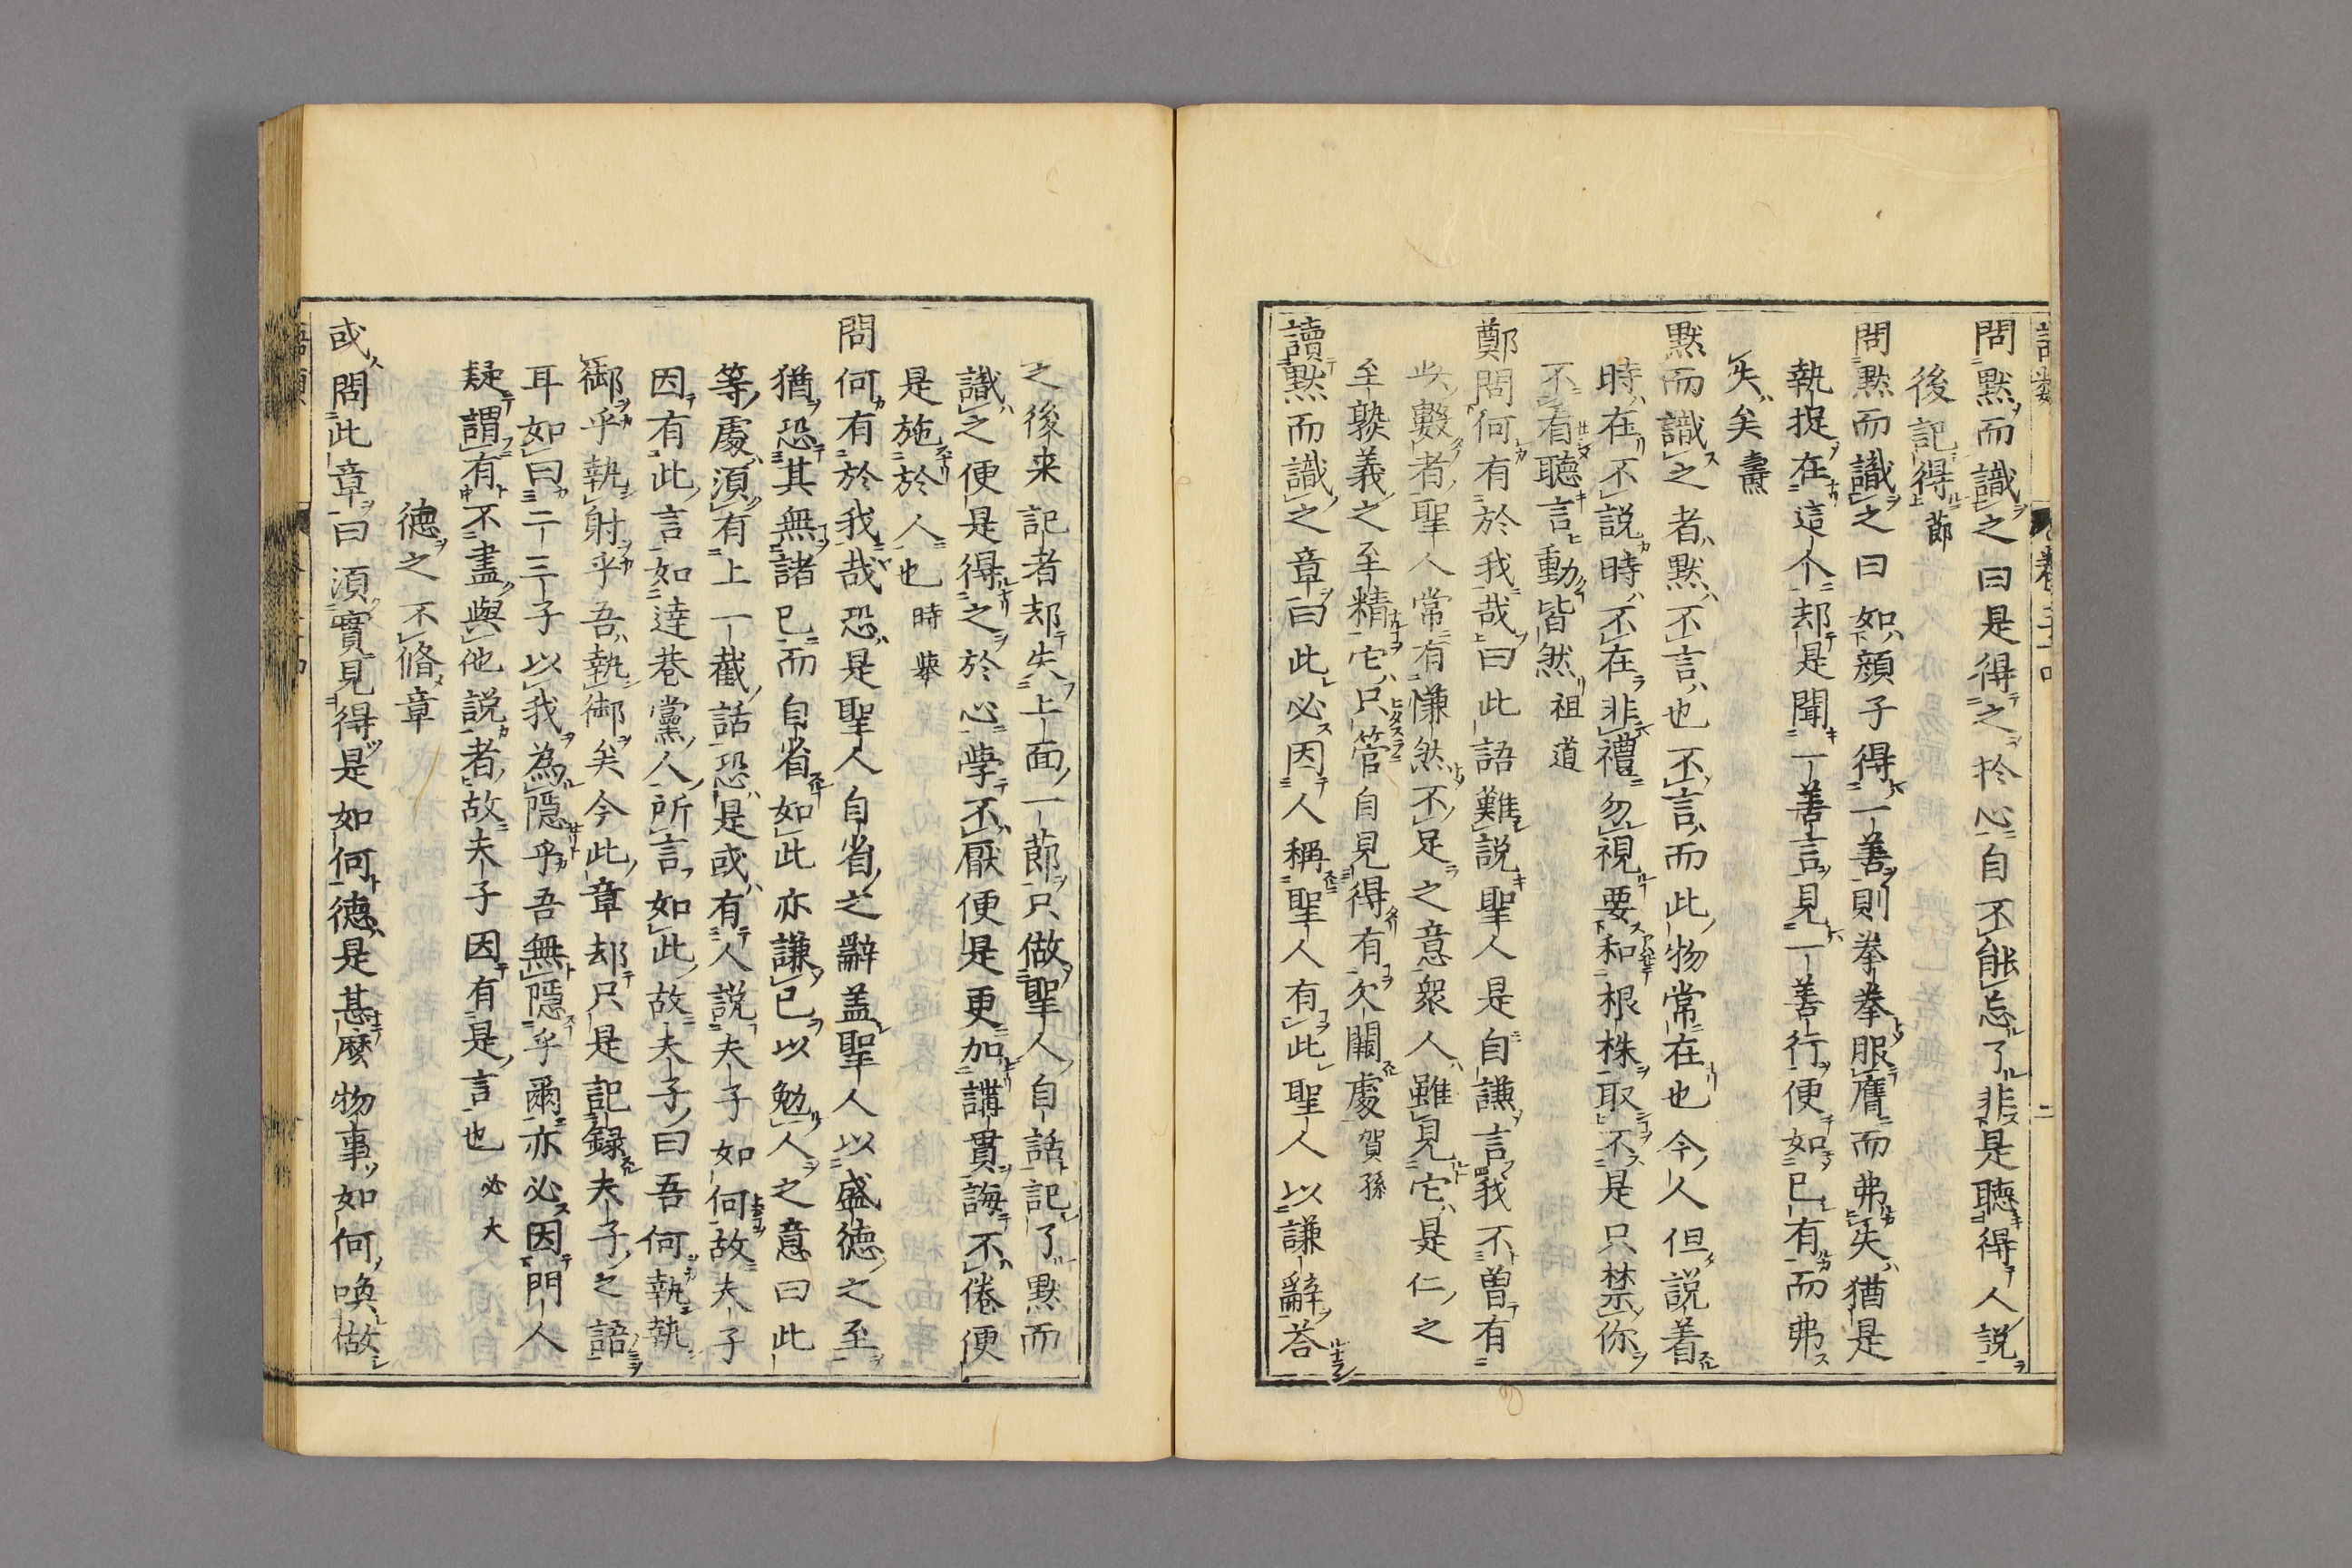 問默而識之曰是得之於心自不能忘了非是聽得人説
後記得節
問默而識之曰如顔子得一善則拳拳服膺而弗失猶是
執捉在這个却是聞一善言見一善行便如己有而弗
失矣燾
默而識之者默不言也不言而此物常在也今人但説着
時在不説時不在非禮勿視要和根株取不是只禁你
不看聽言動皆然祖道
鄭問何有於我哉曰此語難説聖人是自謙言我不曽有
此數者聖人常有慊然不足之意衆人雖見它是仁之
至熟義之至精它只管自見得有欠闕處賀孫
讀默而識之章曰此必因人稱聖人有此聖人以謙辭荅
之後来記者却失上面一莭只做聖人自話記了默而
識之便是得之於心學不厭便是更加講貫誨不倦便
是施於人也時舉
問何有於我哉恐是聖人自省之辭盖聖人以盛徳之至
猶恐其無諸已而自省如此亦謙已以勉人之意曰此
等處須有上一截話恐是或有人説夫子如何故夫子
因有此言如達巷黨人所言如此故夫子曰吾何執執
御乎執射乎吾執御矣今此章却只是記録夫子之語
耳如曰二三子以我為隠乎吾無隠乎爾亦必因門人
疑謂有不盡與他説者故夫子因有是言也必大
徳之不脩章
或問此章曰須實見得是如何徳是甚麽物事如何喚做